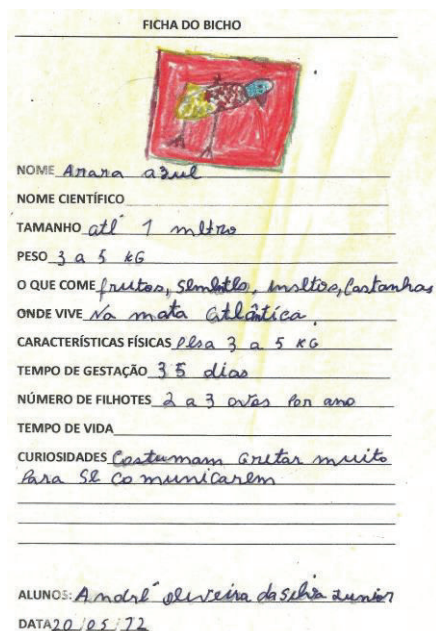 FICHA DO BICHO
NOME Arara azul
NOME CIENTÍFICO
TAMANHO até 1 metro
PESO 3 a 5 KG
O QUE COME frutos, semente, insetos, Castanhas
ONDE VIVE Na mata Atlântica.
CARACTERÍSTICAS FÍSICAS Pesa 3 a 5 KG
TEMPO DE GESTAÇÃO 35 dias
NÚMERO DE FILHOTES 2 a 3 ovos Por ano
TEMPO DE VIDA
CURIOSIDADES Costumam Gritar muito
Para se comunicarem
ALUNOS: André Oliveira da Silva Junior
DATA 20/05/12